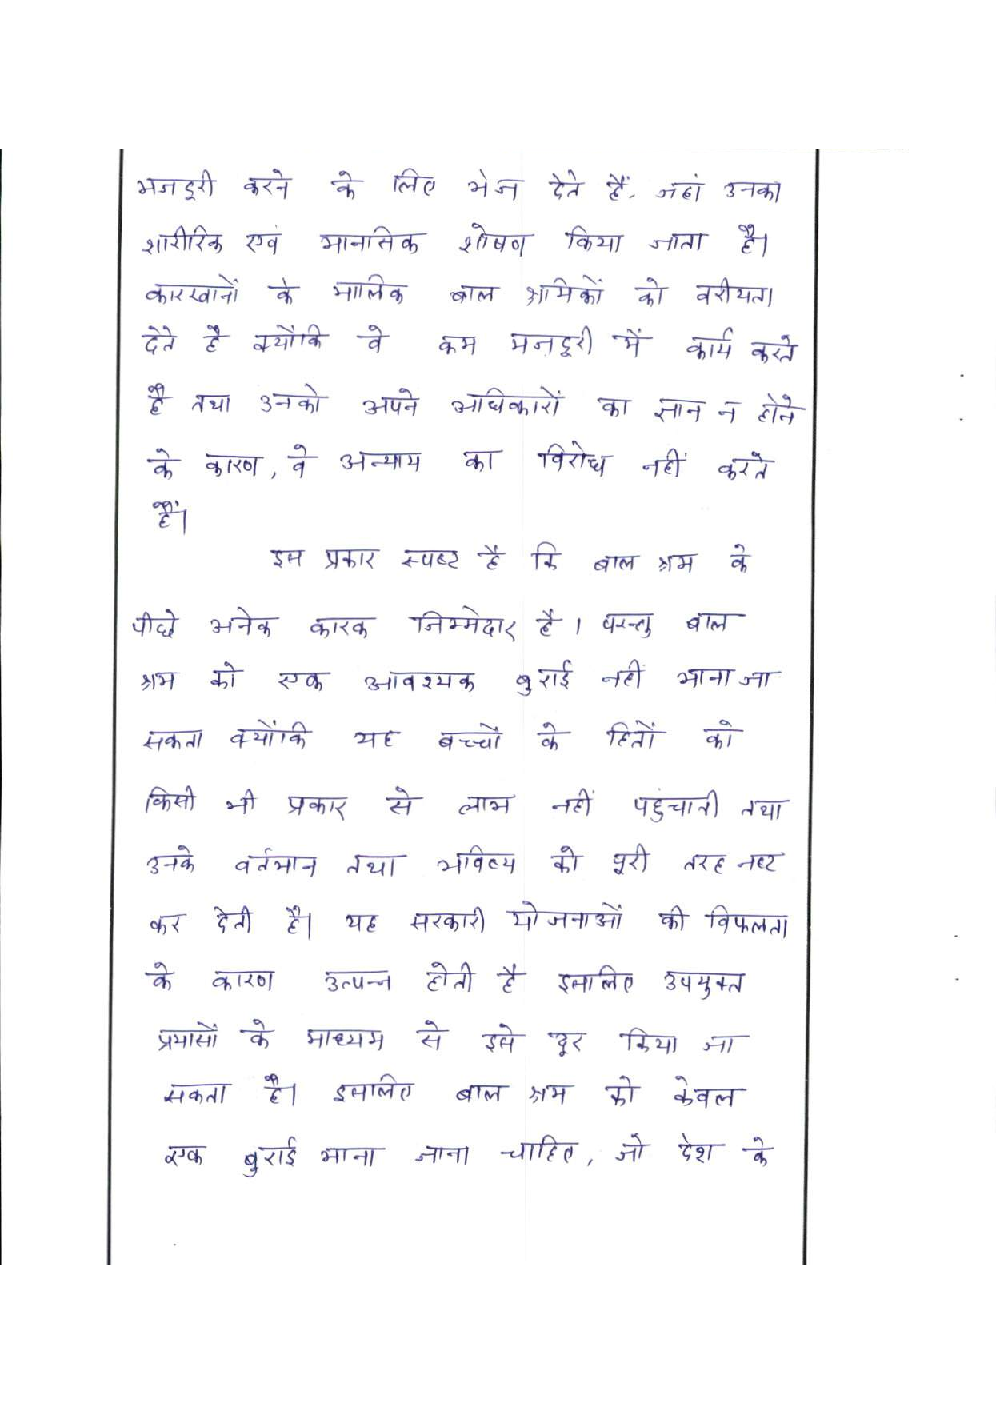 मजदूरी करने के लिए भेज देते हैं, जहां उनका
शारीरिक एवं मानसिक शोषण किया जाता है।
कारखानों के मालिक बाल श्रमिकों को वरीयता
देते है क्योंकि वे कम मजदूरी में कार्य करते
है तथा उनको अपने अधिकारों का ज्ञान न होने
के कारण, वे अन्याय का विरोध नहीं करते
हैं।
इस प्रकार स्पष्ट है कि बाल श्रम के
पीछे अनेक कारक जिम्मेदार है। परन्तु बाल
श्रम को एक आवश्यक बुराई नहीं माना जा
सकता क्योंकि यह बच्चों के हितों को
किसी भी प्रकार से लाभ नहीं पहुंचाती तथा
उनके वर्तमान तथा भविष्य को पूरी तरह नष्ट
कर देती है। यह सरकारी योजनाओं की विफलता
के कारण उत्पन्न होती है इसलिए उपयुक्त
प्रयासों के माध्यम से इसे दूर किया जा
सकता है। इसलिए बाल श्रम को केवल
एक बुराई माना जाना चाहिए, जो देश के